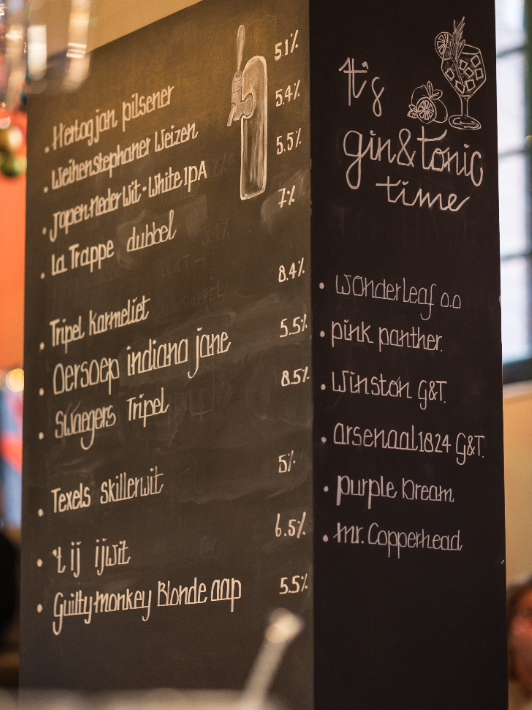 • Hertog jan pilsener 5.1%
• Weihenstephaner Weizen 5.4%
• jopen-neder Wit-White IPA 5.5%
• La Trappe dubbel 7%
• Tripel Karmeliet 8.4%
• Oersoep indiana jane 5.5%
• Swaegers Tripel 8.5%
• Texels skillerwit 5%
• 't ij ijwit 6.5%
• Guilty-monkey Blonde aap 5.5%
It's
gin&tonic
time
• Wonderleaf 0.0
• pink panther.
• Winston G&T.
• arsenaal 1824 G&T.
• purple Dream
• mr. Copperhead